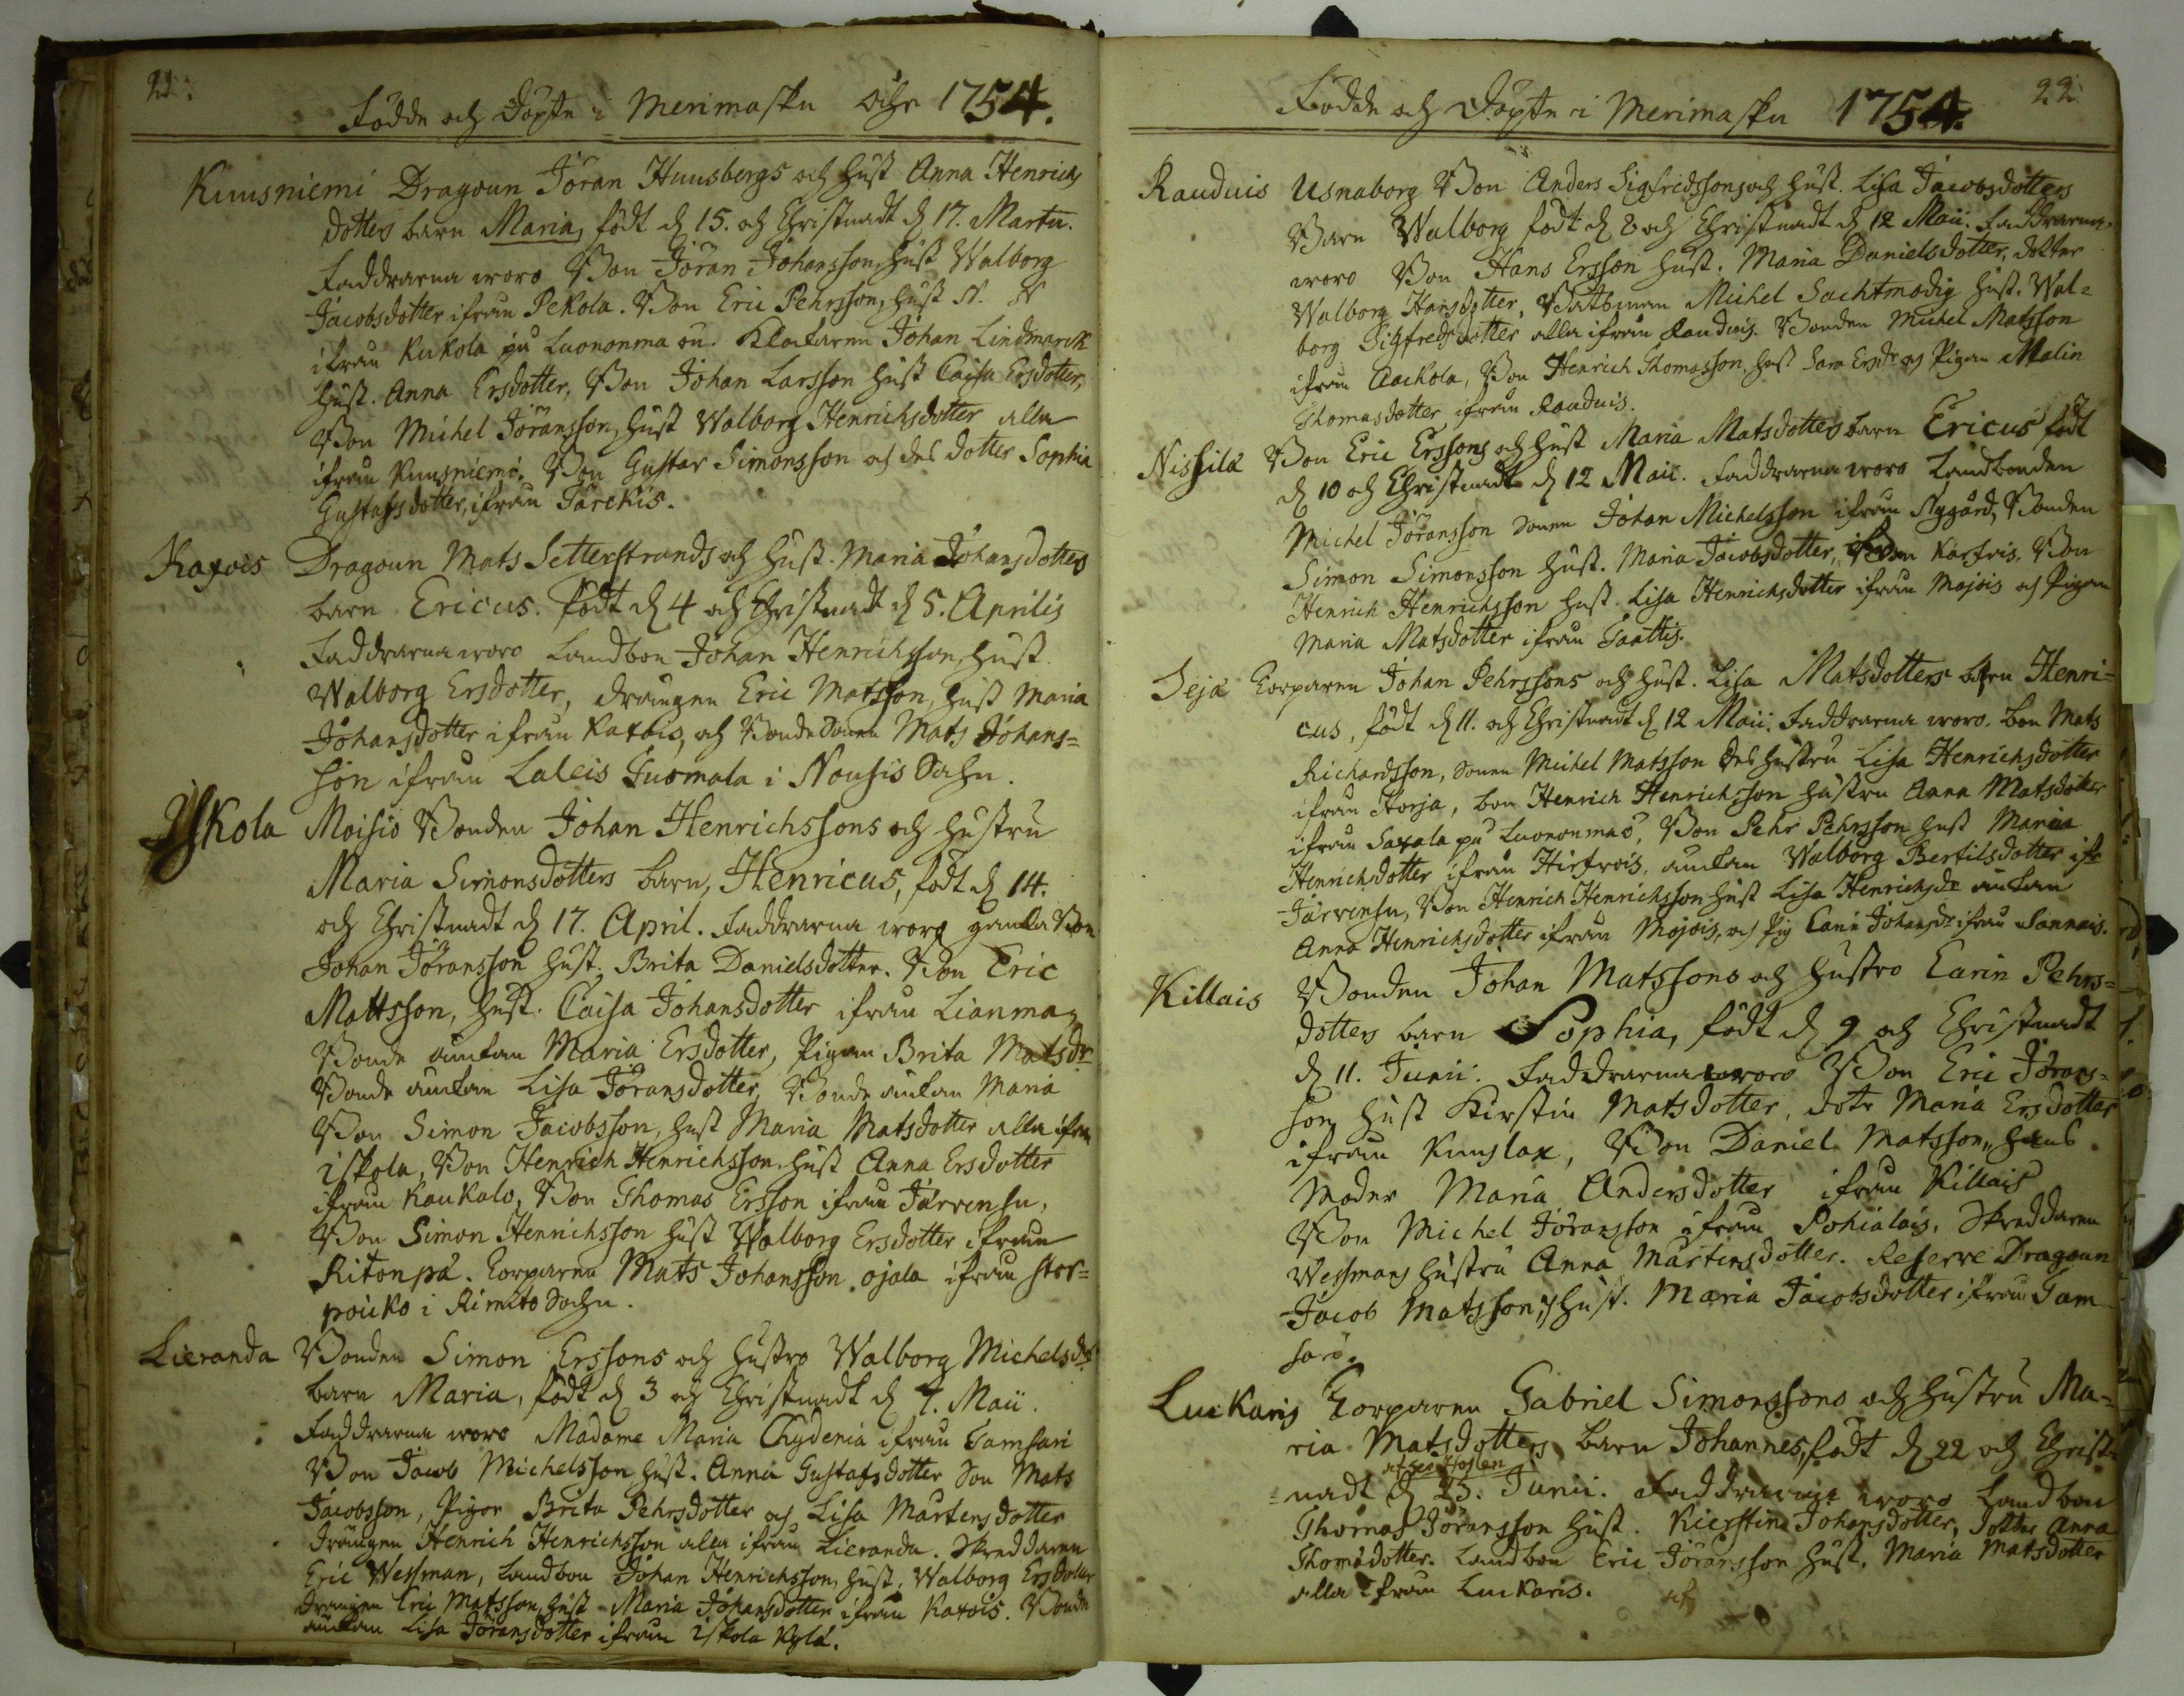 21.
Födde och Döpte i Merimasku Åhr 1754.
Kuusniemi Dragoun Jöran Huusbergs och Hust Anna Henrichs
dotters barn Maria, född d 15. och Christnadt d 17. Martii.
Faddrarna woro Bon Jöran Johansson, Hust Walborg
Jacobsdotter ifrån Pekola. Bon Eric Pehrsson, Hust N. N
ifrån Kukola på Luononma ön. Klockaren Johan Lindmarck
Hust. Anna Ersdotter, Bon Johan Larsson Hust Caisa Ersdotter,
Bon Michel Jöransson, Hust Walborg Henrichsdotter alla
ifrån Kuusniemi. Bon Gustav Simonsson och des dotter Sophia
Gustafsdotter, ifrån Tärckis.
Kaxois Dragoun Mats Setterstrands och Hust. Maria Johansdotters
barn Ericus. född d 4 och Christnadt d 5. Aprilis
Faddrarna woro Landbon Johan Henrichsson, Hust.
Walborg Ersdotter, drängen Eric Matsson, Hust Maria
Johansdotter ifrån Kaxois, och Bonde Sonen Mats Johans=
son ifrån Laleis Tuomala i Nousis Sochn.
Iskola Moisio Bonden Johan Henrichssons och Hustru
Maria Simonsdotters barn, Henricus, född d 14.
och Christnadt d 17. April. Faddrarna woro gamla Bon
Johan Jöransson Hust. Brita Danielsdotter. Bon Eric
Mattsson, Hust. Caisa Johansdotter ifrån Lianma,
Bonde änkan Maria Ersdotter, Pigan Brita Matsdr
Bonde änkan Lisa Jöransdotter, Bonde änkan Maria
Bon Simon Jacobsson, Hust Maria Matsdotter alla ifrån
Iskola, Bon Henrich Henrichsson Hust Anna Ersdotter
ifrån Kaukalo, Bon Thomas Ersson ifrån Järvensu,
Bon Simon Henrichsson Hust Walborg Ersdotter ifrån
Ritonpä. Torparen Mats Johansson ojala ifrån stor=
poiko i Rimito Sochn.
Lieranda Bonden Simon Erssons och Hustro Walborg Michelsdrs
barn Maria, född d 3 och Christnadt d 4. Maii.
Faddrarna woro Madame Maria Chydenia ifrån Tamsari
Bon Jacob Michelsson Hust. Anna Gustafsdotter Son Mats
Jacobsson, Pigor Brita Pehrsdotter och Lisa Mårtensdotter
Drängen Henrich Henrichsson alla ifrån Lieranda. Skreddaren
Eric Wessman, Landbon Johan Henrichsson, Hust. Walborg Ersdotter
Drängen Eric Matsson, Hust Maria Johansdotter ifrån Kaxois. Bonde
änkan Lisa Jöransdotter ifrån Iskola Kylä.
22
Födde och Döpte i Merimasku 1754.
Rauduis Usnaborg Bon Anders Sigfridssons och Hust. Lisa Jacobsdotters
Barn Walborg född d 8 och Christnadt d 12 Maii. Faddrarna
woro Bon Hans Ersson Hust. Maria Danielsdotter, dotter
Walborg Hansdotter, Båtsman Michel Sachtmodig Hust. Wal=
borg Sigfredsdotter alla ifrån Rauduis. Bonden Michel Matsson
ifrån Aackola, Bon Henrich Thomasson, Hust Sara Ersdr och Pigan Malin
Thomasdotter ifrån Rauduis.
Nissilä Bon Eric Erssons och Hust Maria Matsdotters barn Ericus född
d 10 och Christnadt d 12 Maii. Faddrarna woro Landbonden
Michel Jöransson Sonen Johan Michelsson ifrån Nygård, Bonden
Simon Simonsson Hust. Maria Jacobsdotter, ifrån Karfvis, Bon
Henrich Henrichsson Hust. Lisa Henrichsdotter ifrån Mojois och Pigan
Maria Matsdotter ifrån Taattis.
Seja Torparen Johan Pehrssons och Hust. Lisa Matsdotters barn Henri=
cus, född d 11. och Christnadt d 12 Maii. Faddrarna woro. bon Mats
Richardsson, Sonen Michel Matsson des Hustru Lisa Henrichsdotter
ifrån Korja, bon Henrich Henrichsson Hustru Anna Matsdotter
ifrån Saxala på Luononmaö, Bon Pehr Pehrsson Hust Maria
Henrichsdotter ifrån Hirfvois, änkan Walborg Bertilsdotter ifr
Järvensu, Bon Henrich Henrichsson Hust Lisa Henrichsdr änkan
Anna Henrichsdotter ifrån Mojois, och Pig Carin Johansdr ifrån Sannais.
Killais Bonden Johan Matssons och Hustro Carin Pehrs=
dotters barn Sophia, född d 9 och Christnadt
d 11. Junii. Faddrarna woro Bon Eric Jörans=
son Hust Kirstin Matsdotter, dotr Maria Ersdotter
ifrån Kunslax, Bon Daniel Matsson, hans
Moder Maria Andersdotter ifrån Killais
Bon Michel Jöransson ifrån Pohialais. Skreddaren
Wessmans Hustru Anna Mårtensdotter. Reserve Dragoun
Jacob Matsson, Hust. Maria Jacobsdotter ifrån Tam
sarö.
Luckaris Torparen Gabriel Simonssons och Hustru Ma=
ria Matsdotters Barn Johannes, född d 22 och Christ=
nadt d 23. Junii. Faddrarna woro Landbon
Thomas Jöransson Hust. Kierstin Johansdotter, Dotter Anna
Thomädotter. Landbon Eric Jöransson Hust. Maria Matsdotter
alla ifrån Luckaris.